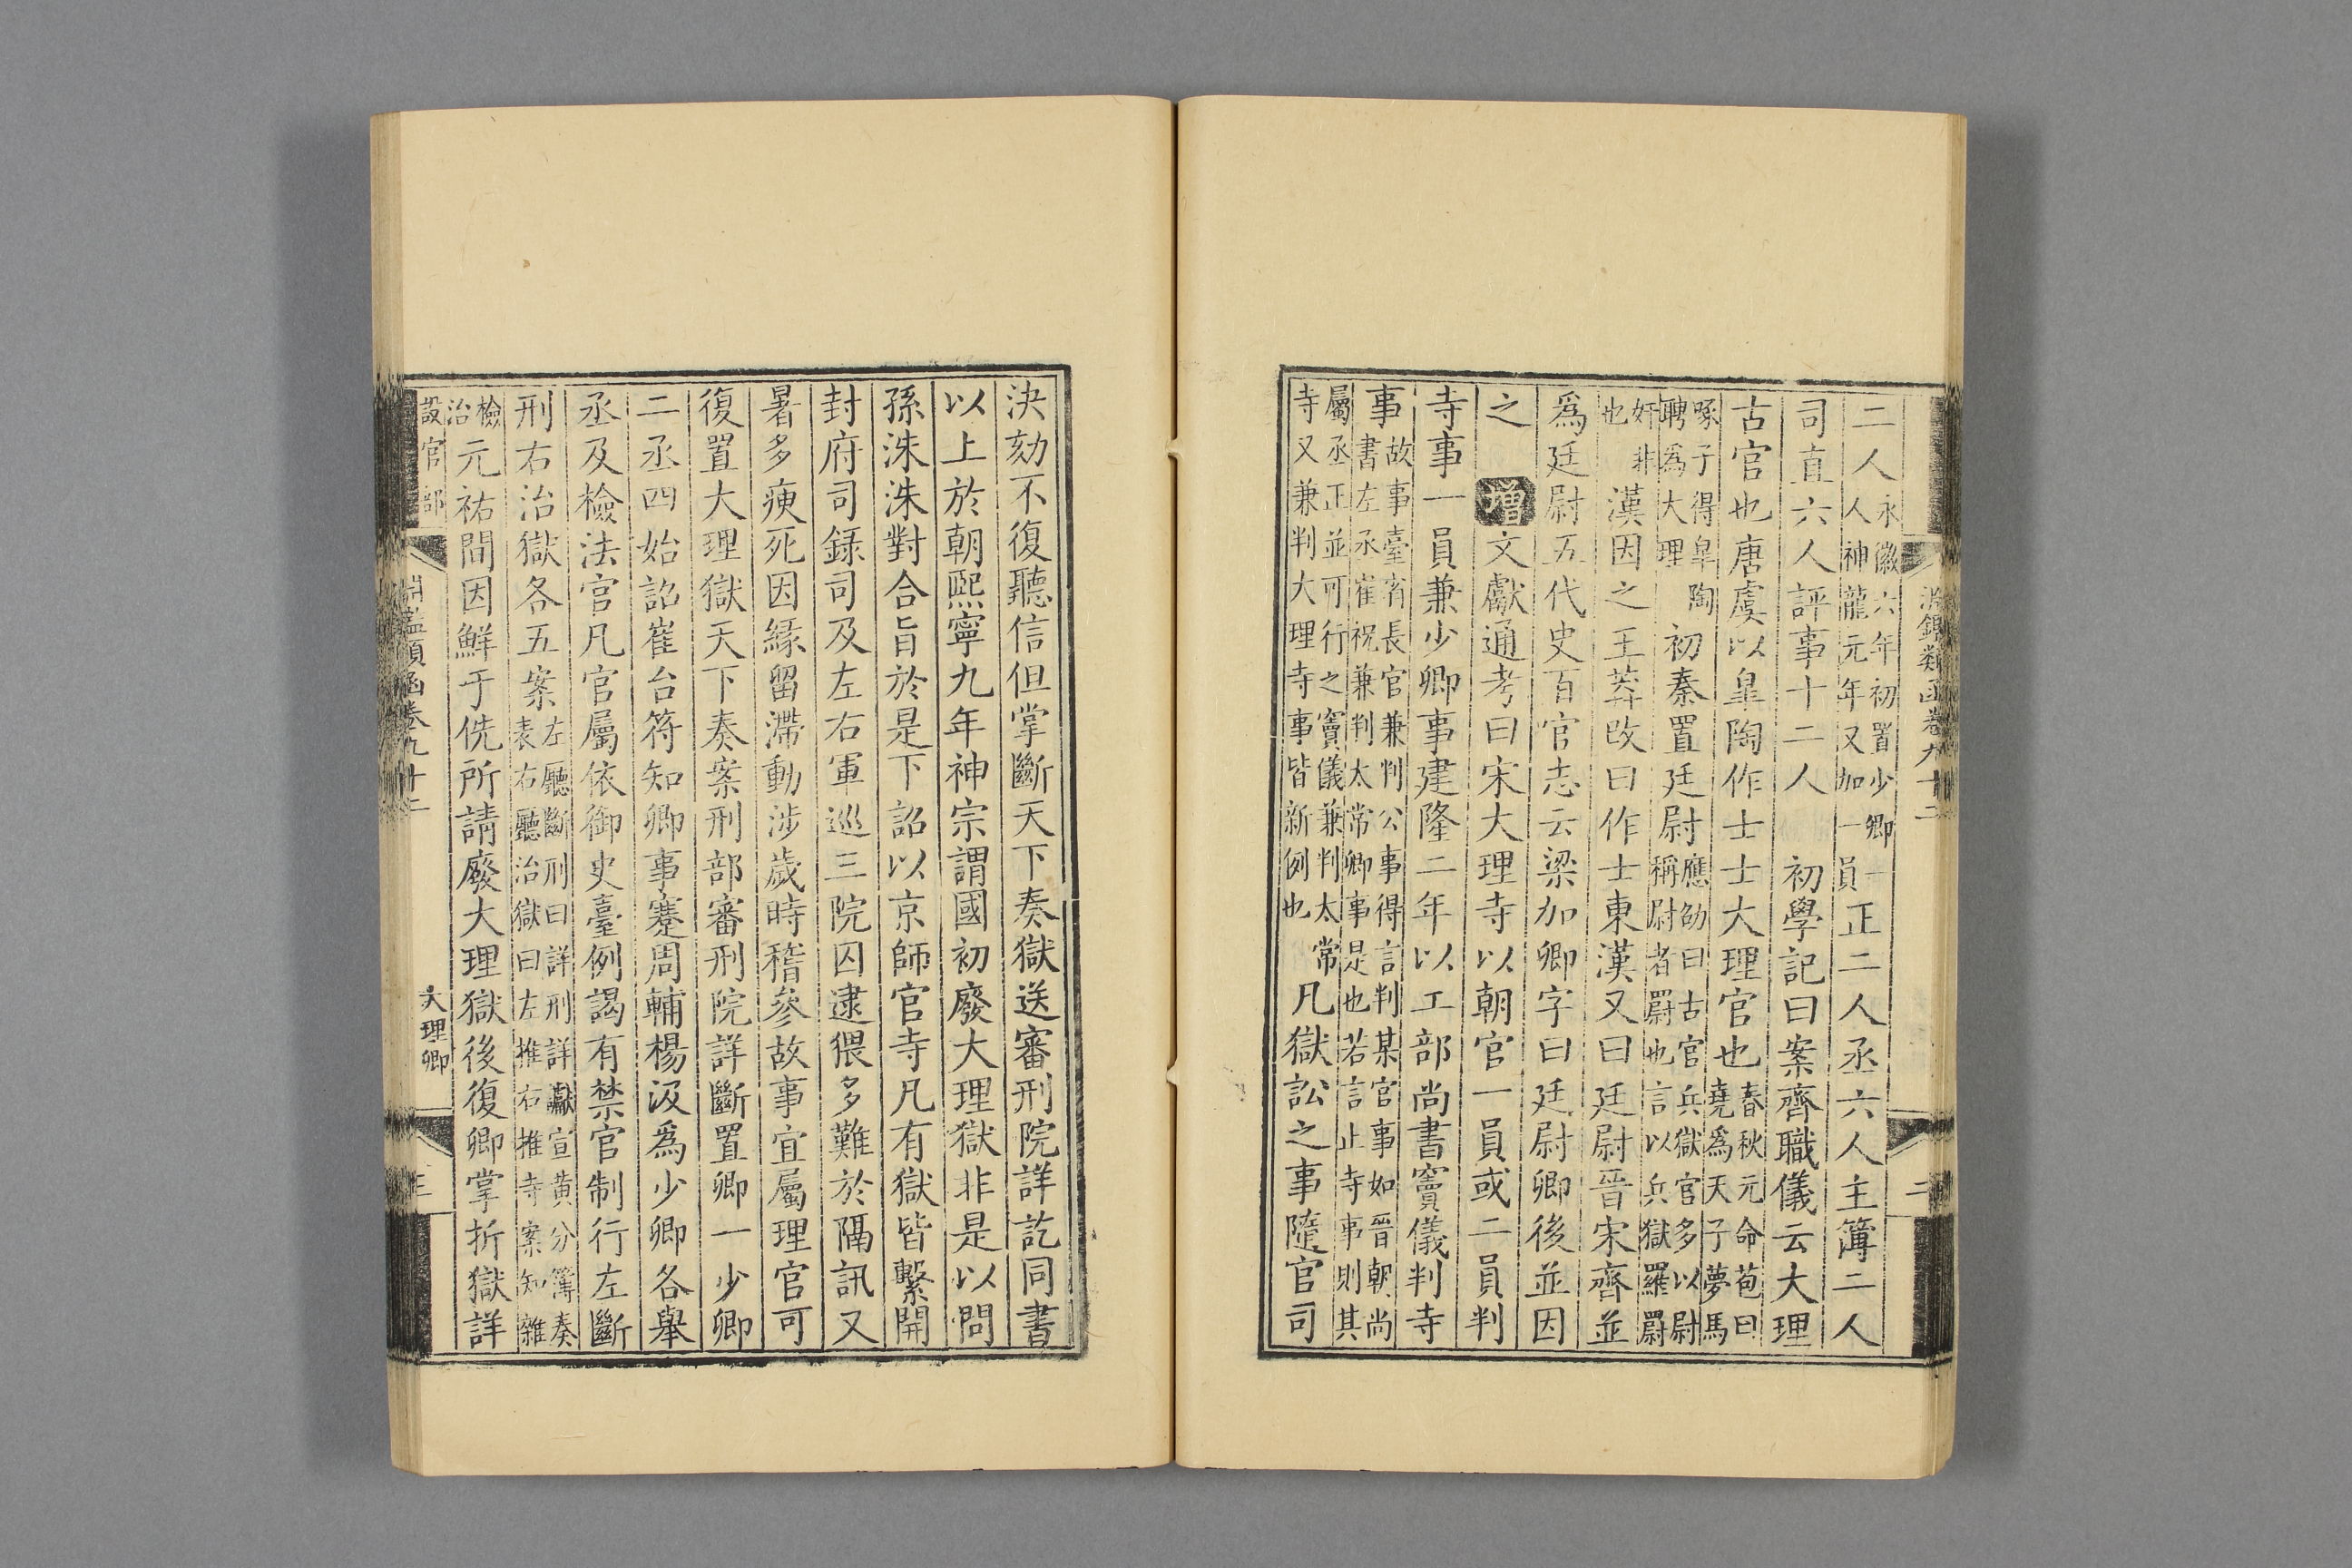 淵鑑類函卷九十二
二
二人永徽六年初置少卿一
人神龍元年又加一員正二人丞六人主簿二人
司直六人評事十二人 初學記曰案齊職儀云大理
古官也唐虞以皐陶作士士大理官也春秋元命苞曰
堯爲天子夢馬
啄子得皐陶
聘爲大理初秦置廷尉應劭曰古官兵獄官多以尉
稱尉者罻也言以兵獄羅罻
奸非
也漢因之王莽改曰作士東漢又曰廷尉晉宋齊並
爲廷尉五代史百官志云梁加卿字曰廷尉卿後並因
之 增文獻通考曰宋大理寺以朝官一員或二員判
寺事一員兼少卿事建隆二年以工部尚書竇儀判寺
事故事臺省長官兼判公事得言判某官事如晉朝尚
書左丞崔祝兼判太常卿事是也若言止寺事則其
屬丞正並可行之竇儀兼判太常
寺又兼判大理寺事皆新例也凡獄訟之事隨官司
決劾不復聽信但掌斷天下奏獄送審刑院詳訖同書
以上於朝熙寧九年神宗謂國初廢大理獄非是以問
孫洙洙對合旨於是下詔以京師官寺凡有獄皆繫開
封府司錄司及左右軍巡三院囚逮猥多難於隔訊又
暑多瘐死因緣留滯動涉歲時稽參故事宜屬理官可
復置大理獄天下奏案刑部審刑院詳斷置卿一少卿
二丞四始詔崔台符知卿事蹇周輔楊汲爲少卿各舉
丞及檢法官凡官屬依御史臺例謁有禁官制行左斷
刑右治獄各五案左廳斷刑曰詳刑詳讞宣黃分簿奏
表右廳治獄曰左推右推寺案知雜
檢
治元祐間因鮮于侁所請廢大理獄後復卿掌折獄詳
淵鑑類函卷九十二
設官部
大理卿
三